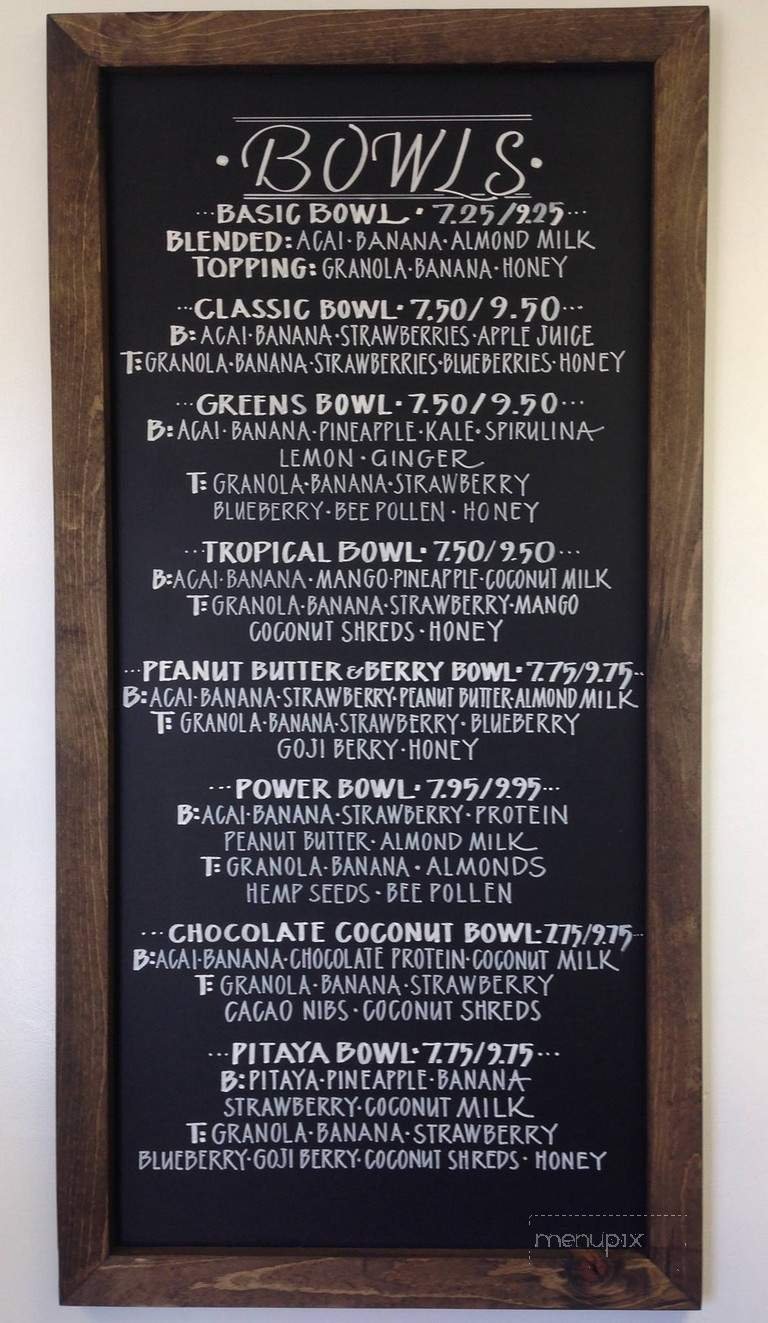 ·BOWLS·
···BASIC BOWL· 7.25/9.25···
BLENDED: ACAI·BANANA·ALMOND MILK
TOPPING: GRANOLA·BANANA·HONEY
···CLASSIC BOWL· 7.50/9.50···
B: ACAI·BANANA·STRAWBERRIES·APPLE JUICE
T: GRANOLA·BANANA·STRAWBERRIES·BLUEBERRIES·HONEY
···GREENS BOWL· 7.50/9.50···
B: ACAI·BANANA·PINEAPPLE·KALE·SPIRULINA
LEMON·GINGER
T: GRANOLA·BANANA·STRAWBERRY
BLUEBERRY·BEE POLLEN·HONEY
···TROPICAL BOWL· 7.50/9.50···
B: ACAI·BANANA·MANGO·PINEAPPLE·COCONUT MILK
T: GRANOLA·BANANA·STRAWBERRY·MANGO
COCONUT SHREDS·HONEY
···PEANUT BUTTER & BERRY BOWL· 7.75/9.75··
B: ACAI·BANANA·STRAWBERRY·PEANUT BUTTER·ALMOND MILK
T: GRANOLA·BANANA·STRAWBERRY·BLUEBERRY
GOJI BERRY·HONEY
···POWER BOWL· 7.95/9.95···
B: ACAI·BANANA·STRAWBERRY·PROTEIN
PEANUT BUTTER·ALMOND MILK
T: GRANOLA·BANANA·ALMONDS
HEMP SEEDS·BEE POLLEN
···CHOCOLATE COCONUT BOWL· 7.75/9.75··
B: ACAI·BANANA·CHOCOLATE PROTEIN·COCONUT MILK
T: GRANOLA·BANANA·STRAWBERRY
CACAO NIBS·COCONUT SHREDS
···PITAYA BOWL· 7.75/9.75···
B: PITAYA·PINEAPPLE·BANANA
STRAWBERRY·COCONUT MILK
T: GRANOLA·BANANA·STRAWBERRY
BLUEBERRY·GOJI BERRY·COCONUT SHREDS·HONEY
menupix